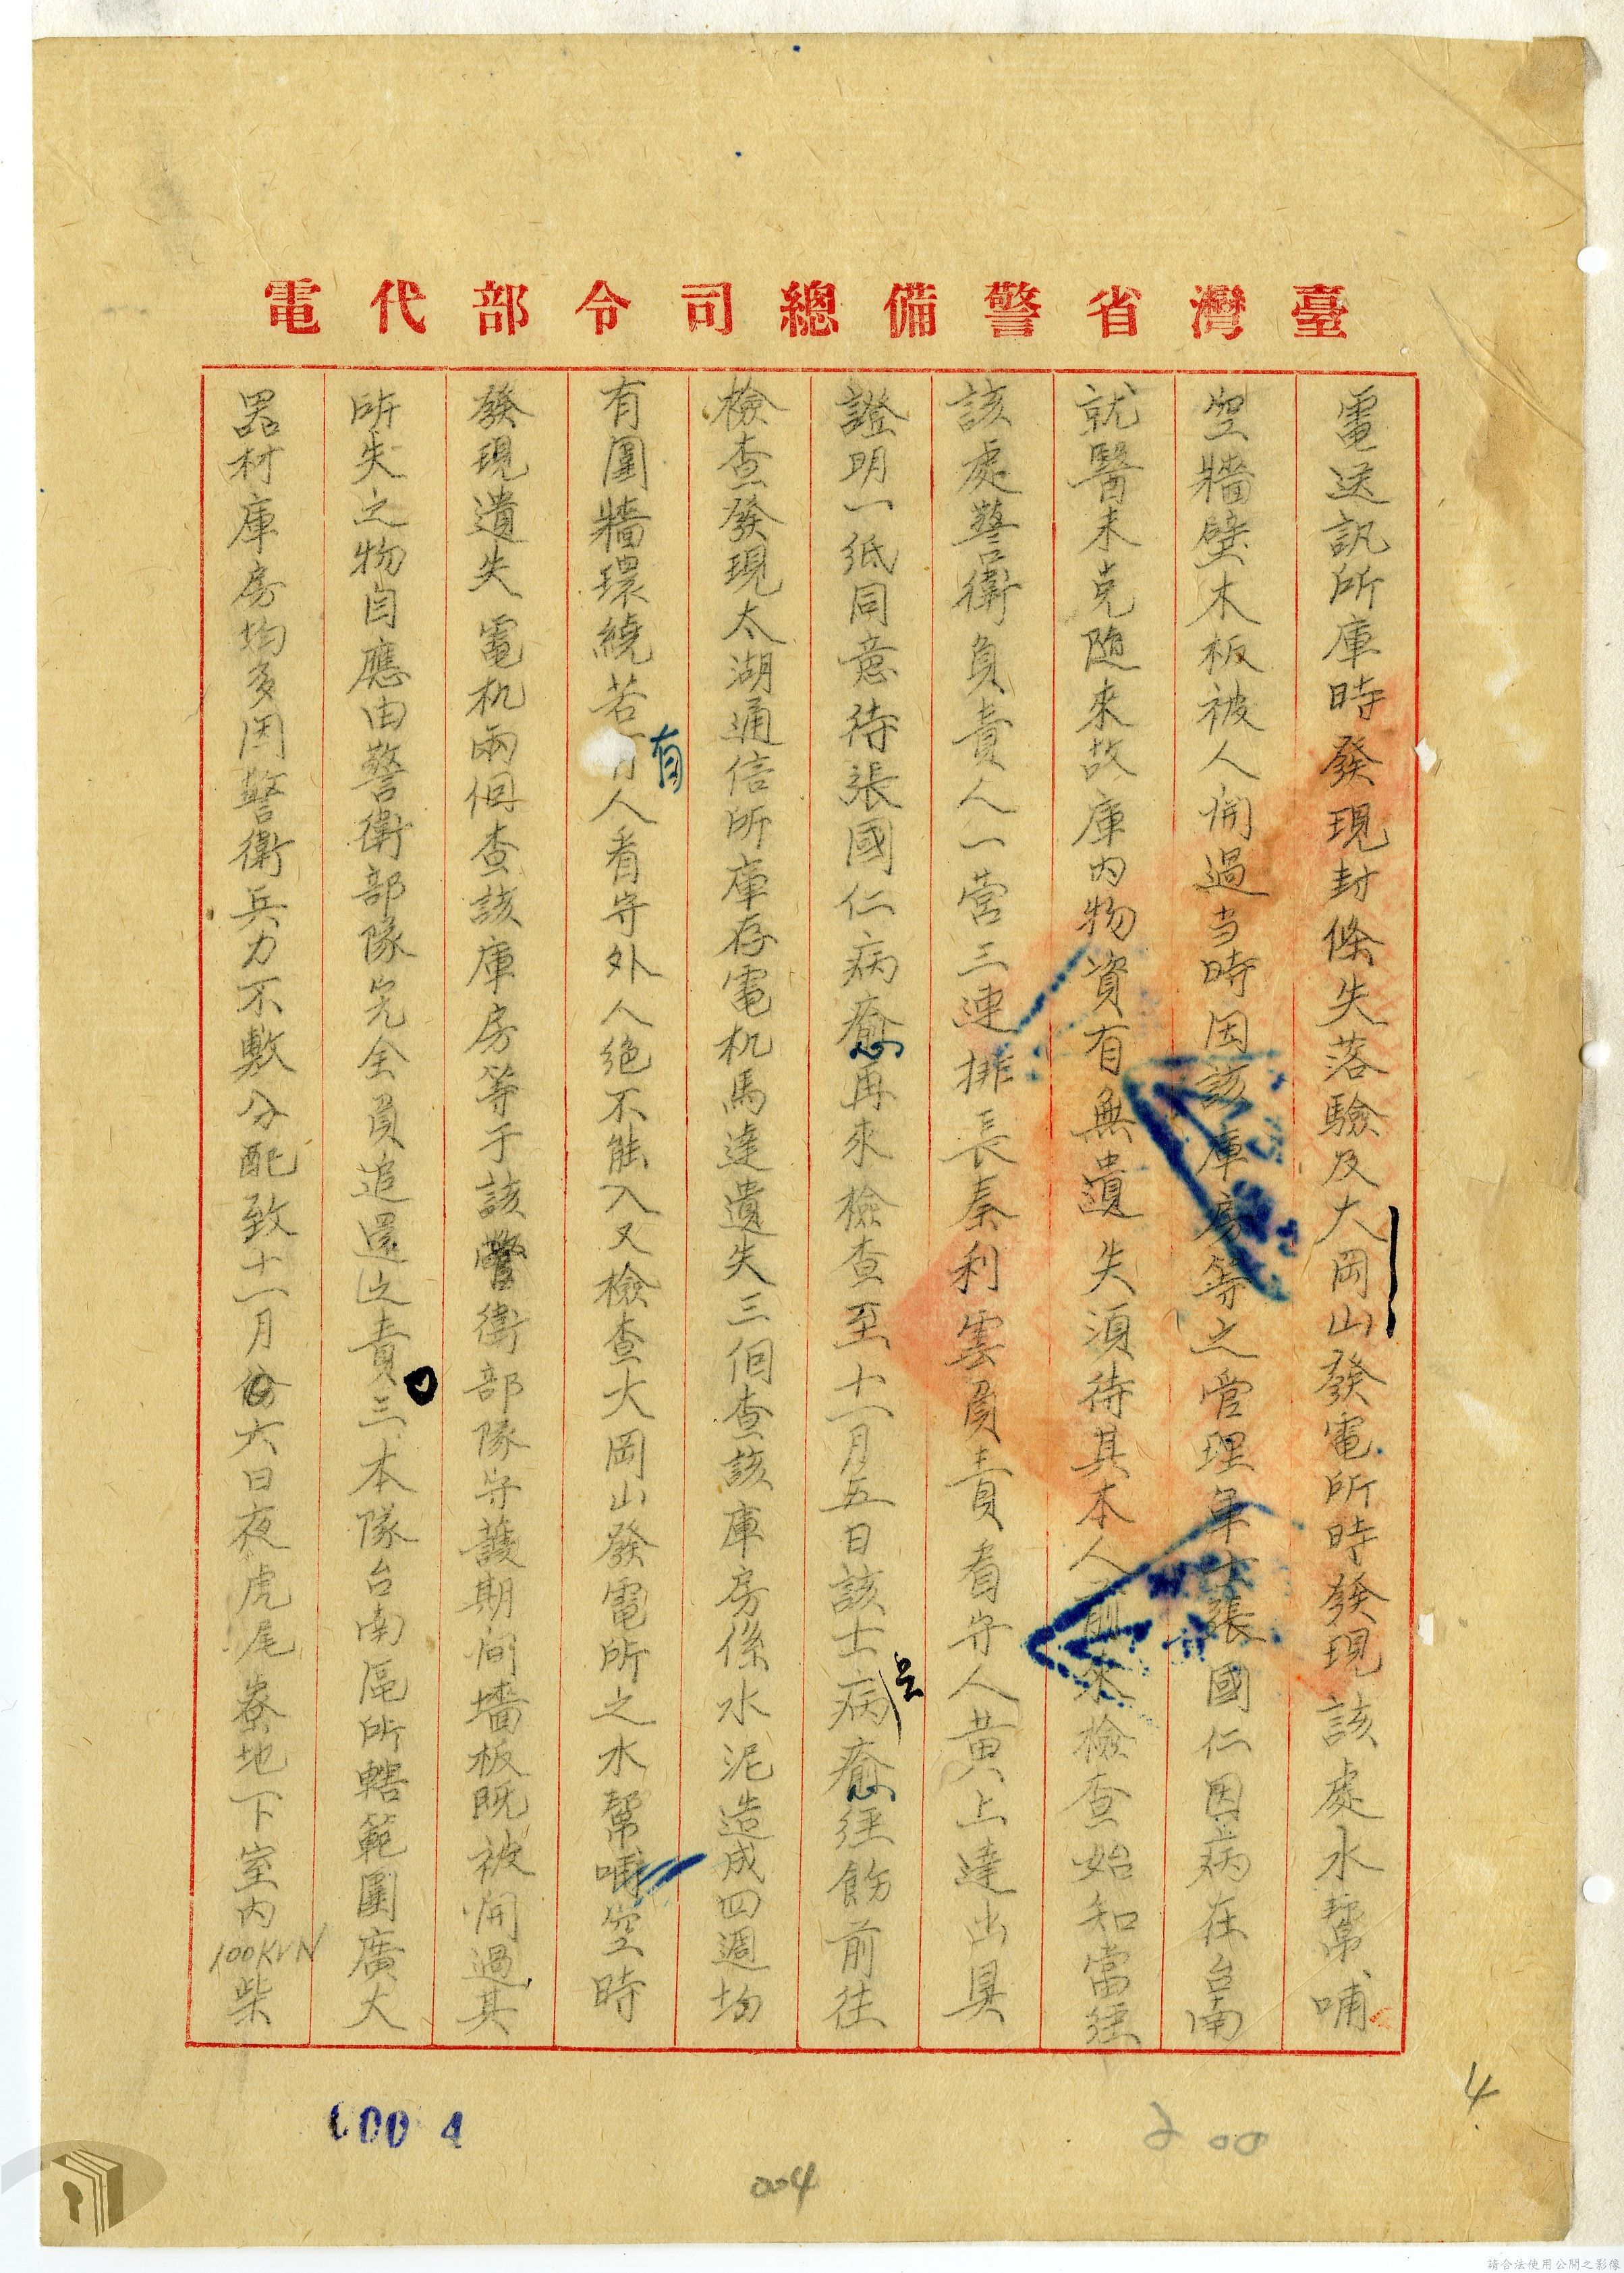 臺灣省警備總司令部代電
電送訊所庫時發現封條失落驗及大岡山發電所時發現該處水幫哺
空牆壁木板被人開過当時因該庫房等之管理軍士張國仁因病在台南
就醫未克隨來故庫內物資有無遺失須待其本人前來檢查始知當經
該處警衛負責人一營三連排長秦利雲負責看守人黃上達出具
證明一紙同意待張國仁病癒再來檢查至十一月五日該士病癒經飭前往
檢查發現太湖通信所庫存電机馬達遺失三個查該庫房係水泥造成四週均
有圍牆環繞若有人看守外人絕不能入又檢查大岡山發電所之水幫哺空時
發現遺失電机兩個查該庫房等于該警衛部隊守護期间墻板既被開過其
所失之物自應由警衛部隊完全負追還之責三本隊台南區所轄範圍廣大
器材庫房均多因警衛兵力不敷分配致十一月份六日夜虎尾寮地下室內100KVN柴
有
4
000 4
004
請合法使用公開之影像